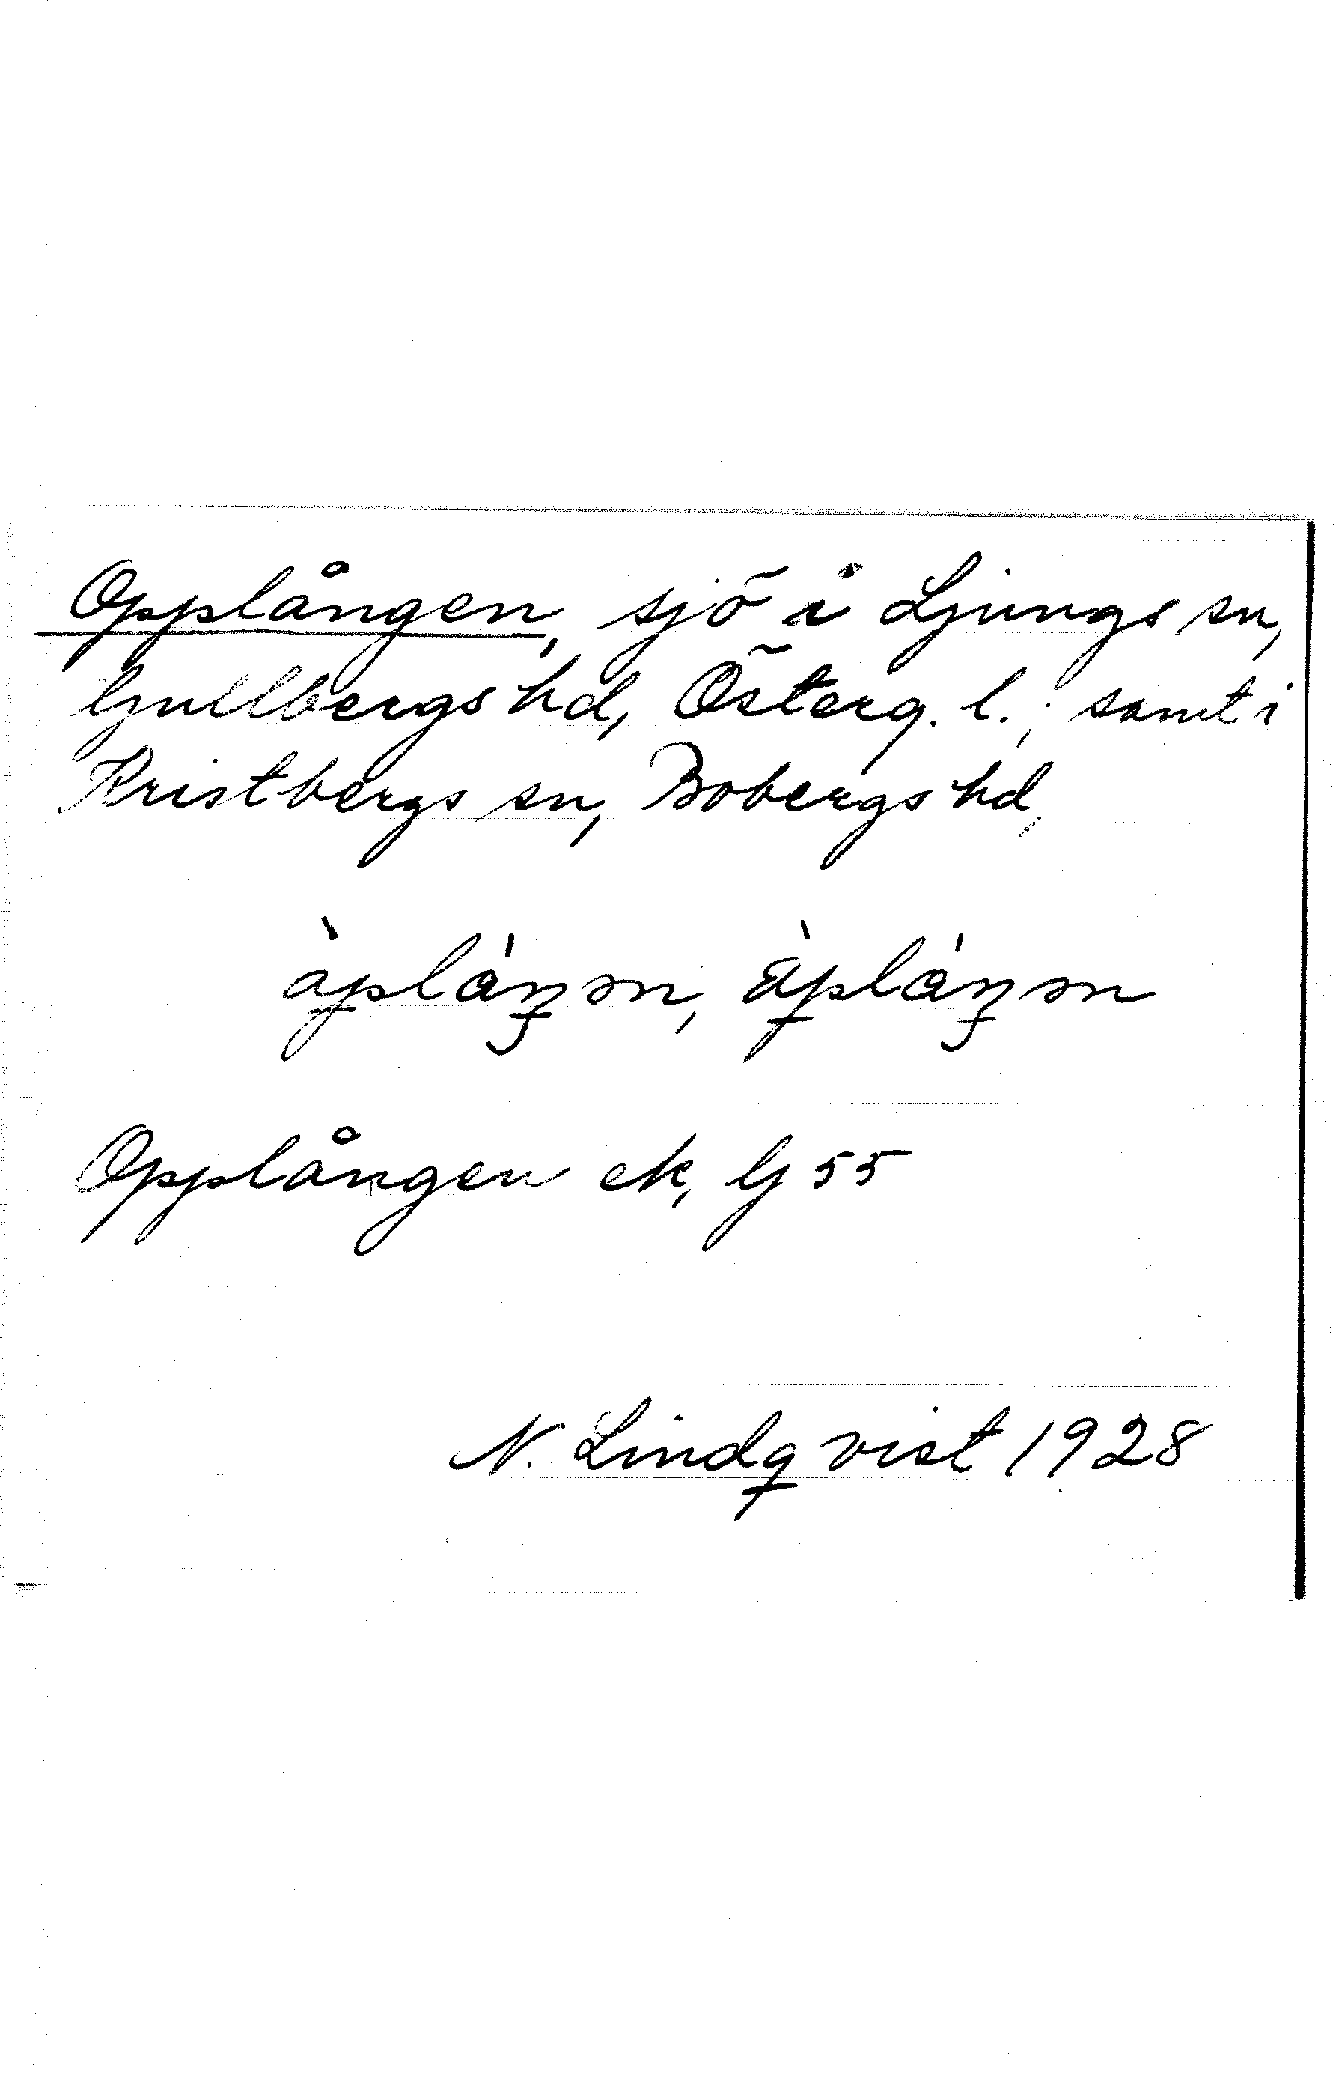 Opplången, sjö i Ljungs sn,
Gullbergs hd, Österg. l.; samt i
Kristbergs sn, Bobergs hd,
Opplången ek, G 55
N. Lindqvist 1928